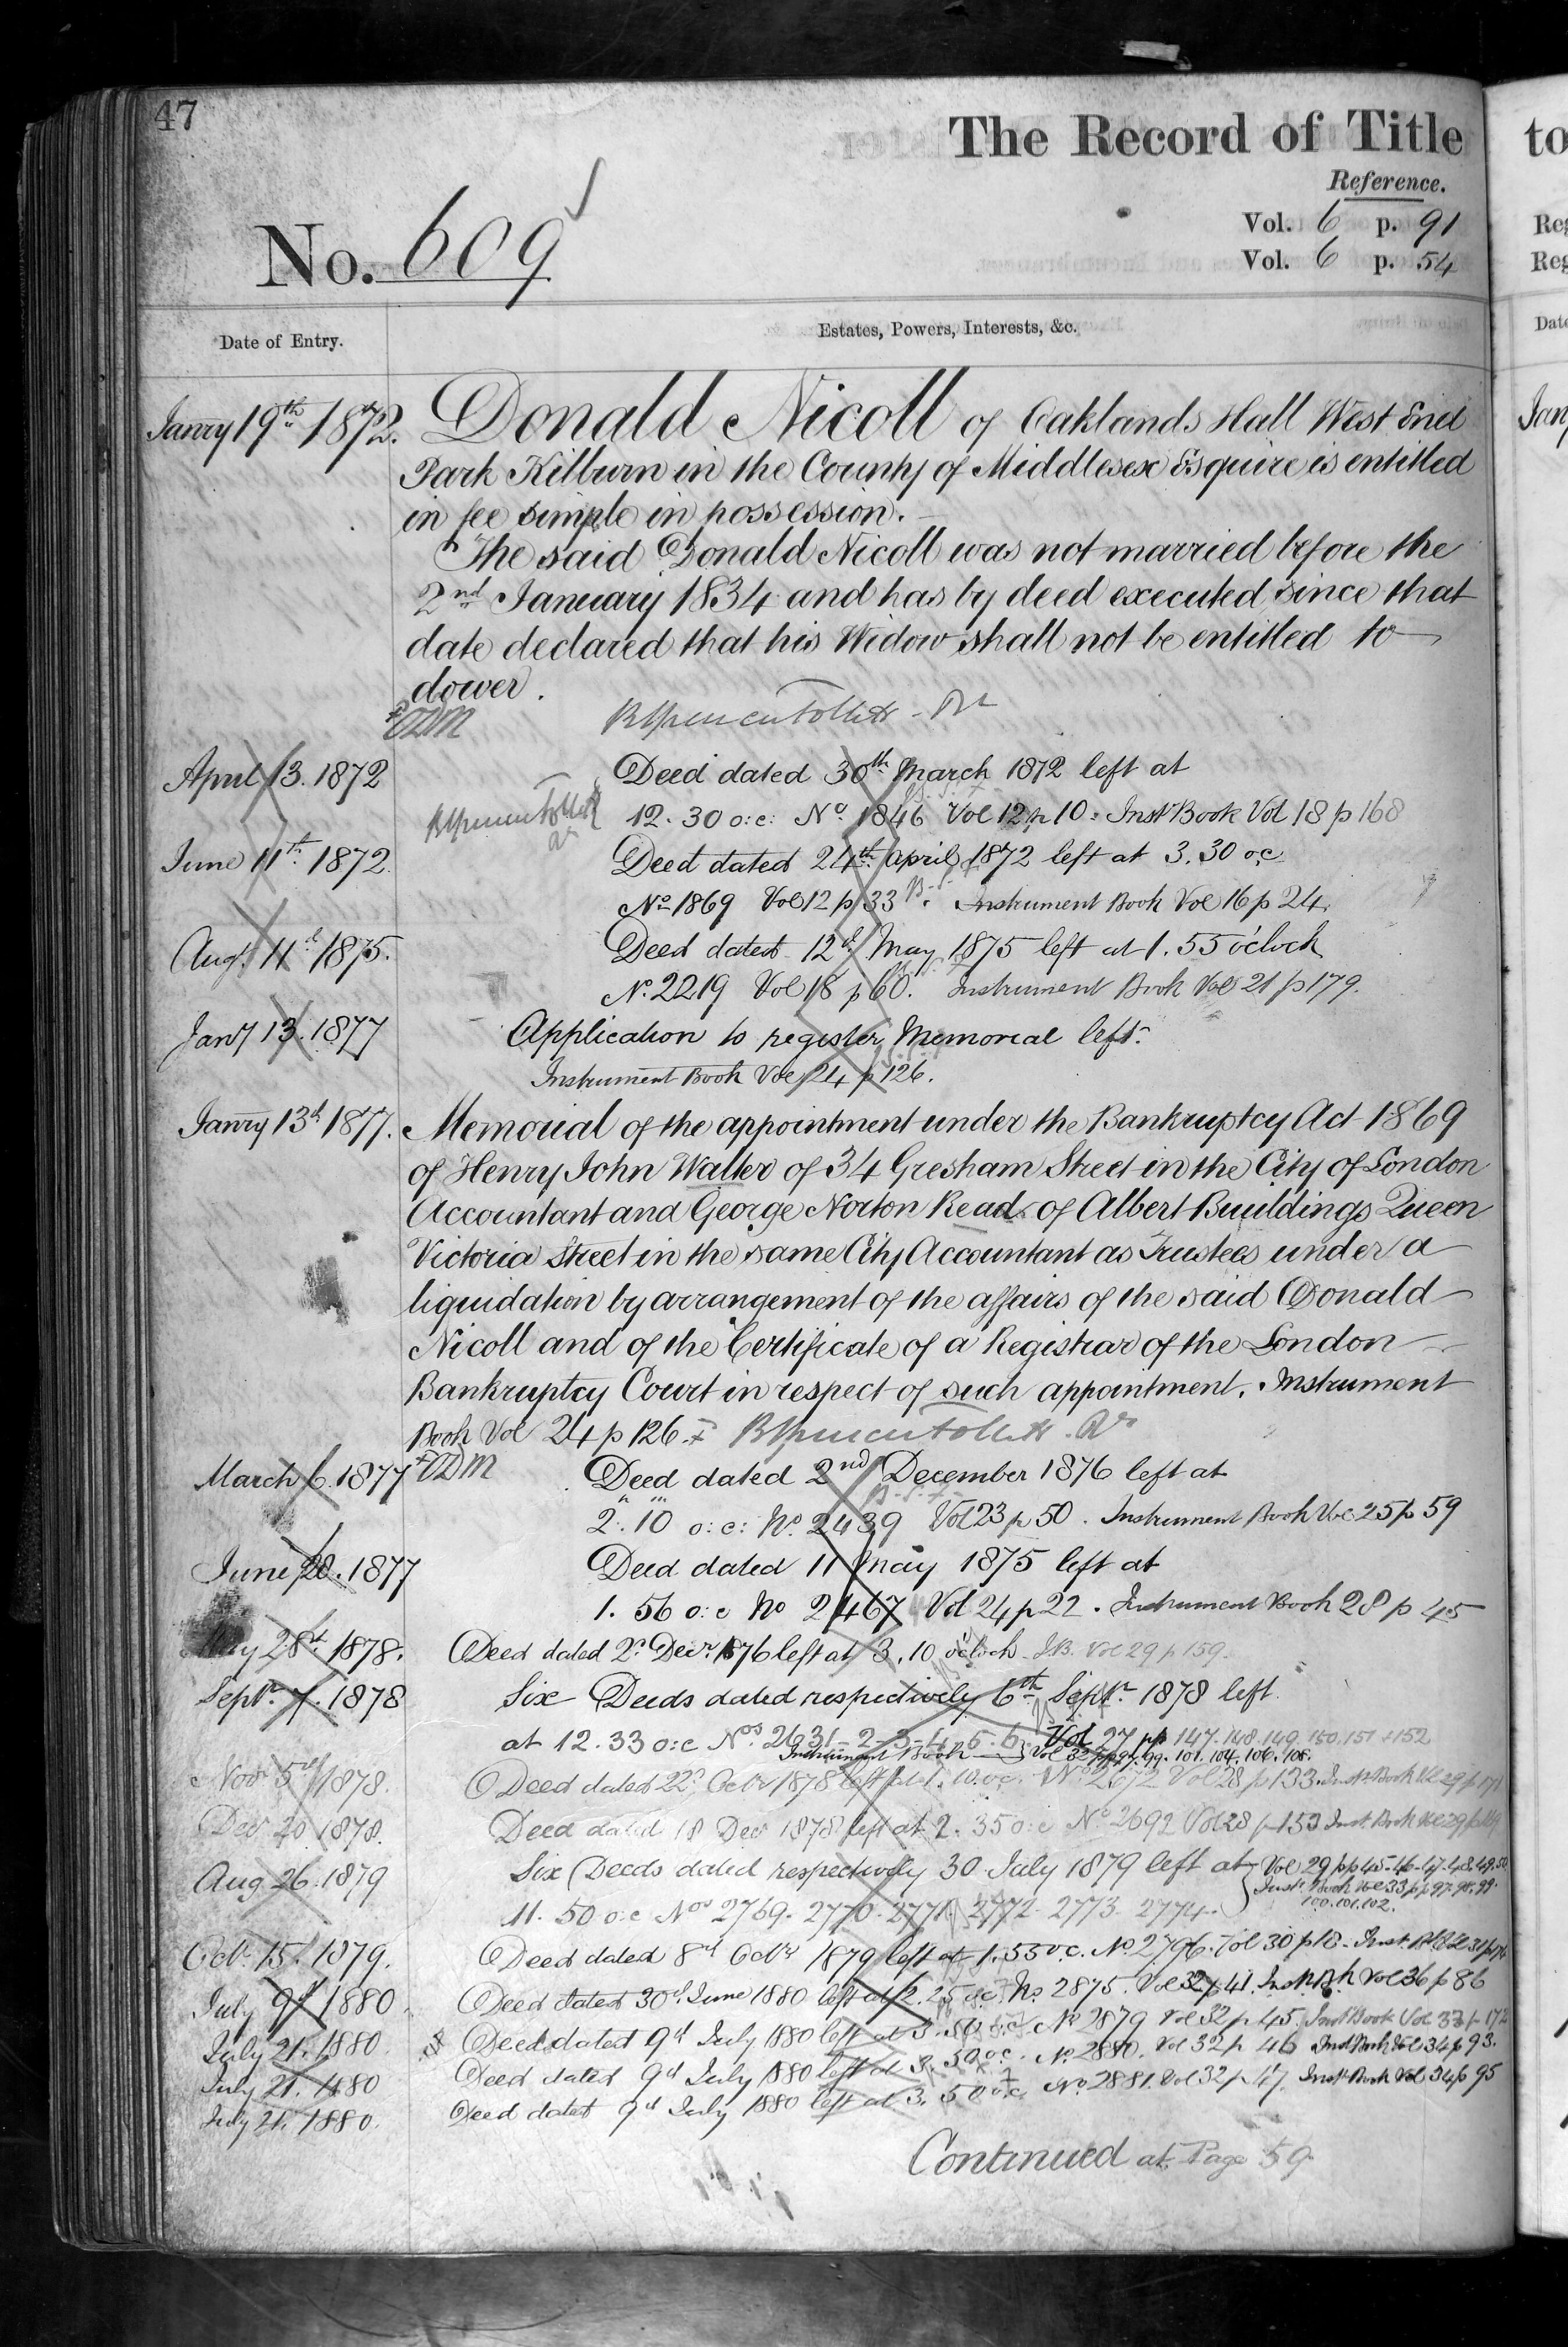 47
The Record of Title
Reference.
No. 609
Vol. 6 p. 91
Vol. 6 p. 54
Date of Entry.
Estates, Powers, Interests, &c.
Janry 19th 1872. Donald Nicoll of Oaklands Hall West End
Park Kilburn in the County of Middlesex Esquire is entitled
in fee simple in possession.
The said Donald Nicoll was not married before the
2nd January 1834 and has by deed executed since that
date declared that his Widow shall not be entitled to
dower.
B Spencer Follett
April 13. 1872 Deed dated 30th March 1872 left at
12.30 o:c: No 1846 Vol 12 p 10. Inst Book Vol 18 p 168
June 11th 1872. Deed dated 24th April 1872 left at 3.30 o,c
No 1869 Vol 12 p 33 Instrument Book Vol 16 p 24.
Augt. 11th 1875. Deed dated 12th May 1875 left at 1.55 o'clock
No. 2219 Vol 18 p 60. Instrument Book Vol 21 p 179.
Jany 13. 1877 Application to register Memorial left.
Instrument Book Vol 24 p 126.
Janry 13th 1877. Memorial of the appointment under the Bankruptcy Act 1869
of Henry John Walter of 34 Gresham Street in the City of London
Accountant and George Norton Read of Albert Buildings Queen
Victoria Street in the same City Accountant as Trustees under a
liquidation by arrangement of the affairs of the said Donald
Nicoll and of the Certificate of a Registrar of the London
Bankruptcy Court in respect of such appointment. Instrument
Book Vol 24 p 126. B Spencer Follett
March 6. 1877 Deed dated 2nd December 1876 left at
2.10 o:c: No. 2439 Vol 23 p 50. Instrument Book Vol 25 p 59
June 20. 1877 Deed dated 11 May 1875 left at
1.56 o:c No 2467 Vol 24 p 22. Instrument Book 28 p 45
May 28th 1878. Deed dated 2d Decr. 1876 left at 3.10 o'clock I.B. Vol 29 p 159.
Septr. 7. 1878 Six Deeds dated respectively 6th Septr 1878 left
at 12.33 o:c Nos 2631-2-3-4-5-6. Vol 27 pp 147.148.149.150.151+152
Instrument Book Vol 32 pp 99. 101. 104. 106. 108.
Nov 5th 1878. Deed dated 22d Octr 1878 left at 1.10. o.c. No. 2672 Vol 28 p 133. Inst. Book Vol 29 p
Decr 20 1878. Deed dated 18 Decr 1878 left at 2.35 o:c No 2692 Vol 28 p 153 Inst. Book Vol 29 p
Aug 26. 1879 Six Deeds dated respectively 30 July 1879 left at Vol 29 pp 45-46-47-48.49.50
Inst. Book Vol 33 pp 97.98.99.
100.101.102.
11.50 o:c Nos 2769. 2770. 2771. 2772. 2773. 2774.
Octr. 15th 1879. Deed dated 8th Octr 1879 left at 1.55 o'c. No. 2796. Vol 30 p 18. Inst. Bk Vol 31 p
July 9th 1880. Deed dated 30th June 1880 left at 12.25 o.c. No. 2875. Vol 32 p 41. Inst. Bk Vol 36 p 86
July 21. 1880. Deed dated 9th July 1880 left at 3.50 o.c. No 2879 Vol 32 p 45. Inst Book Vol 33 p 172
July 21. 1880 Deed dated 9th July 1880 left at 3.50 o.c. No. 2880. Vol 32 p 46 Inst Book Vol 34 p 93.
July 21. 1880. Deed dated 9th July 1880 left at 3.50 o.c. No. 2881. Vol 32 p 47. Inst. Book Vol 34 p 95
Continued at Page 59